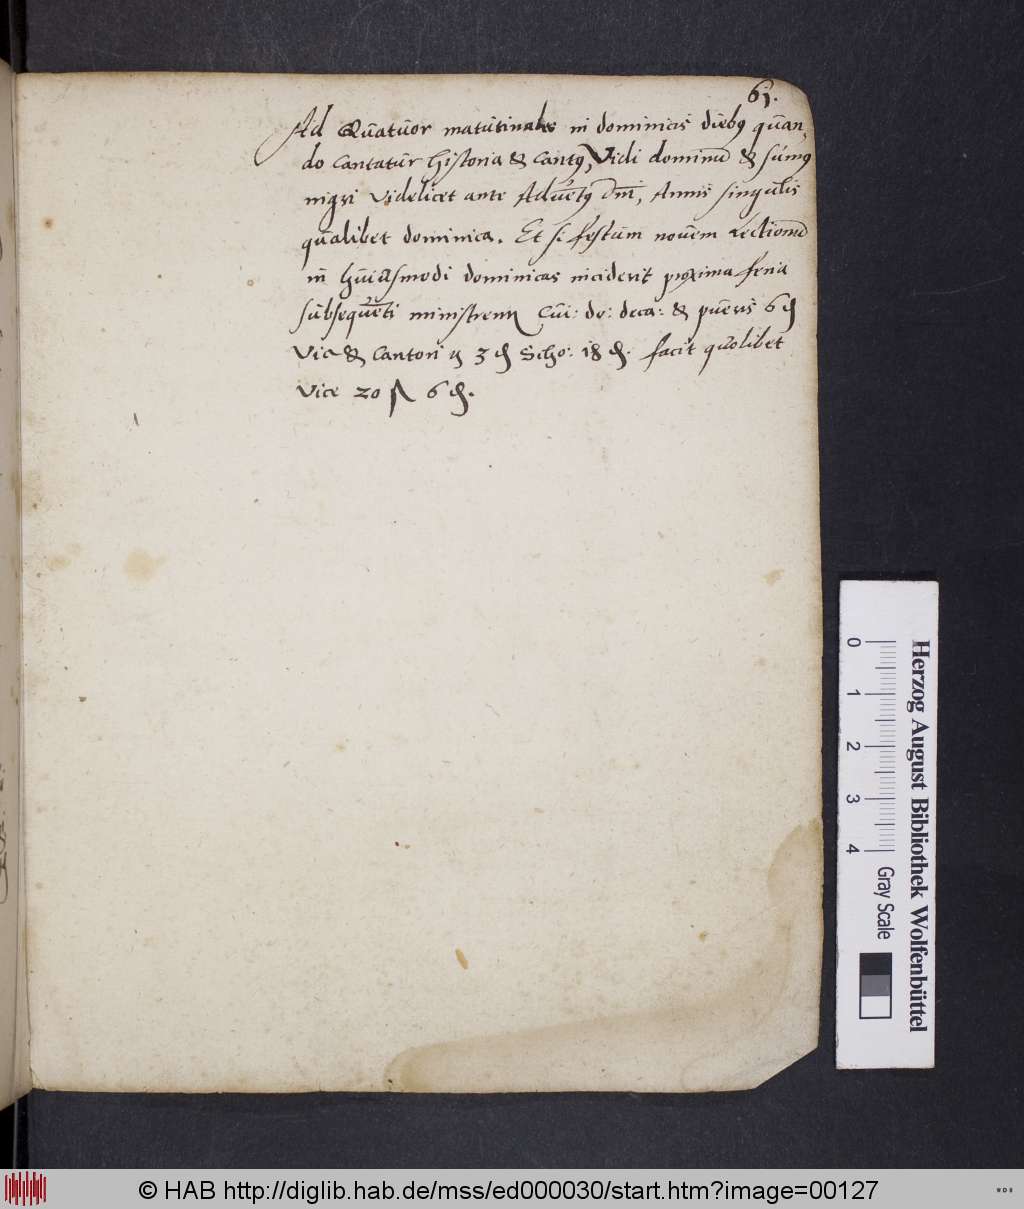 61.
Ad Quatuor matutinales in dominicis diebꝯ quan,
do cantatur historia & cantꝯ, Vidi dominū & sumꝯ
nigri videlicet ante Aduētꝯ Dn̄i, Annis singulis
qualibet dominica. Et si festum nouem Lectionū
in huiusmodi dominicas inciderit proxima feria
subsequēti ministrent Cui: do: deca: & pueris 6 ₰
Vic & Cantori 3 ₰ Scho: 18 ₰. facit quolibet
Vice 20 ß 6 ₰.
0 1 2 3 4
Gray Scale
Herzog August Bibliothek Wolfenbüttel
© HAB http://diglib.hab.de/mss/ed000030/start.htm?image=00127